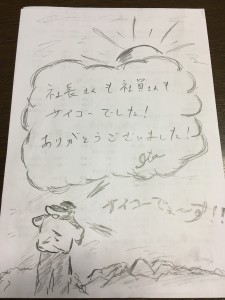 社長さんも社員さんも
サイコーでした!
ありがとうございました!
サイコーでぇ〜す!!